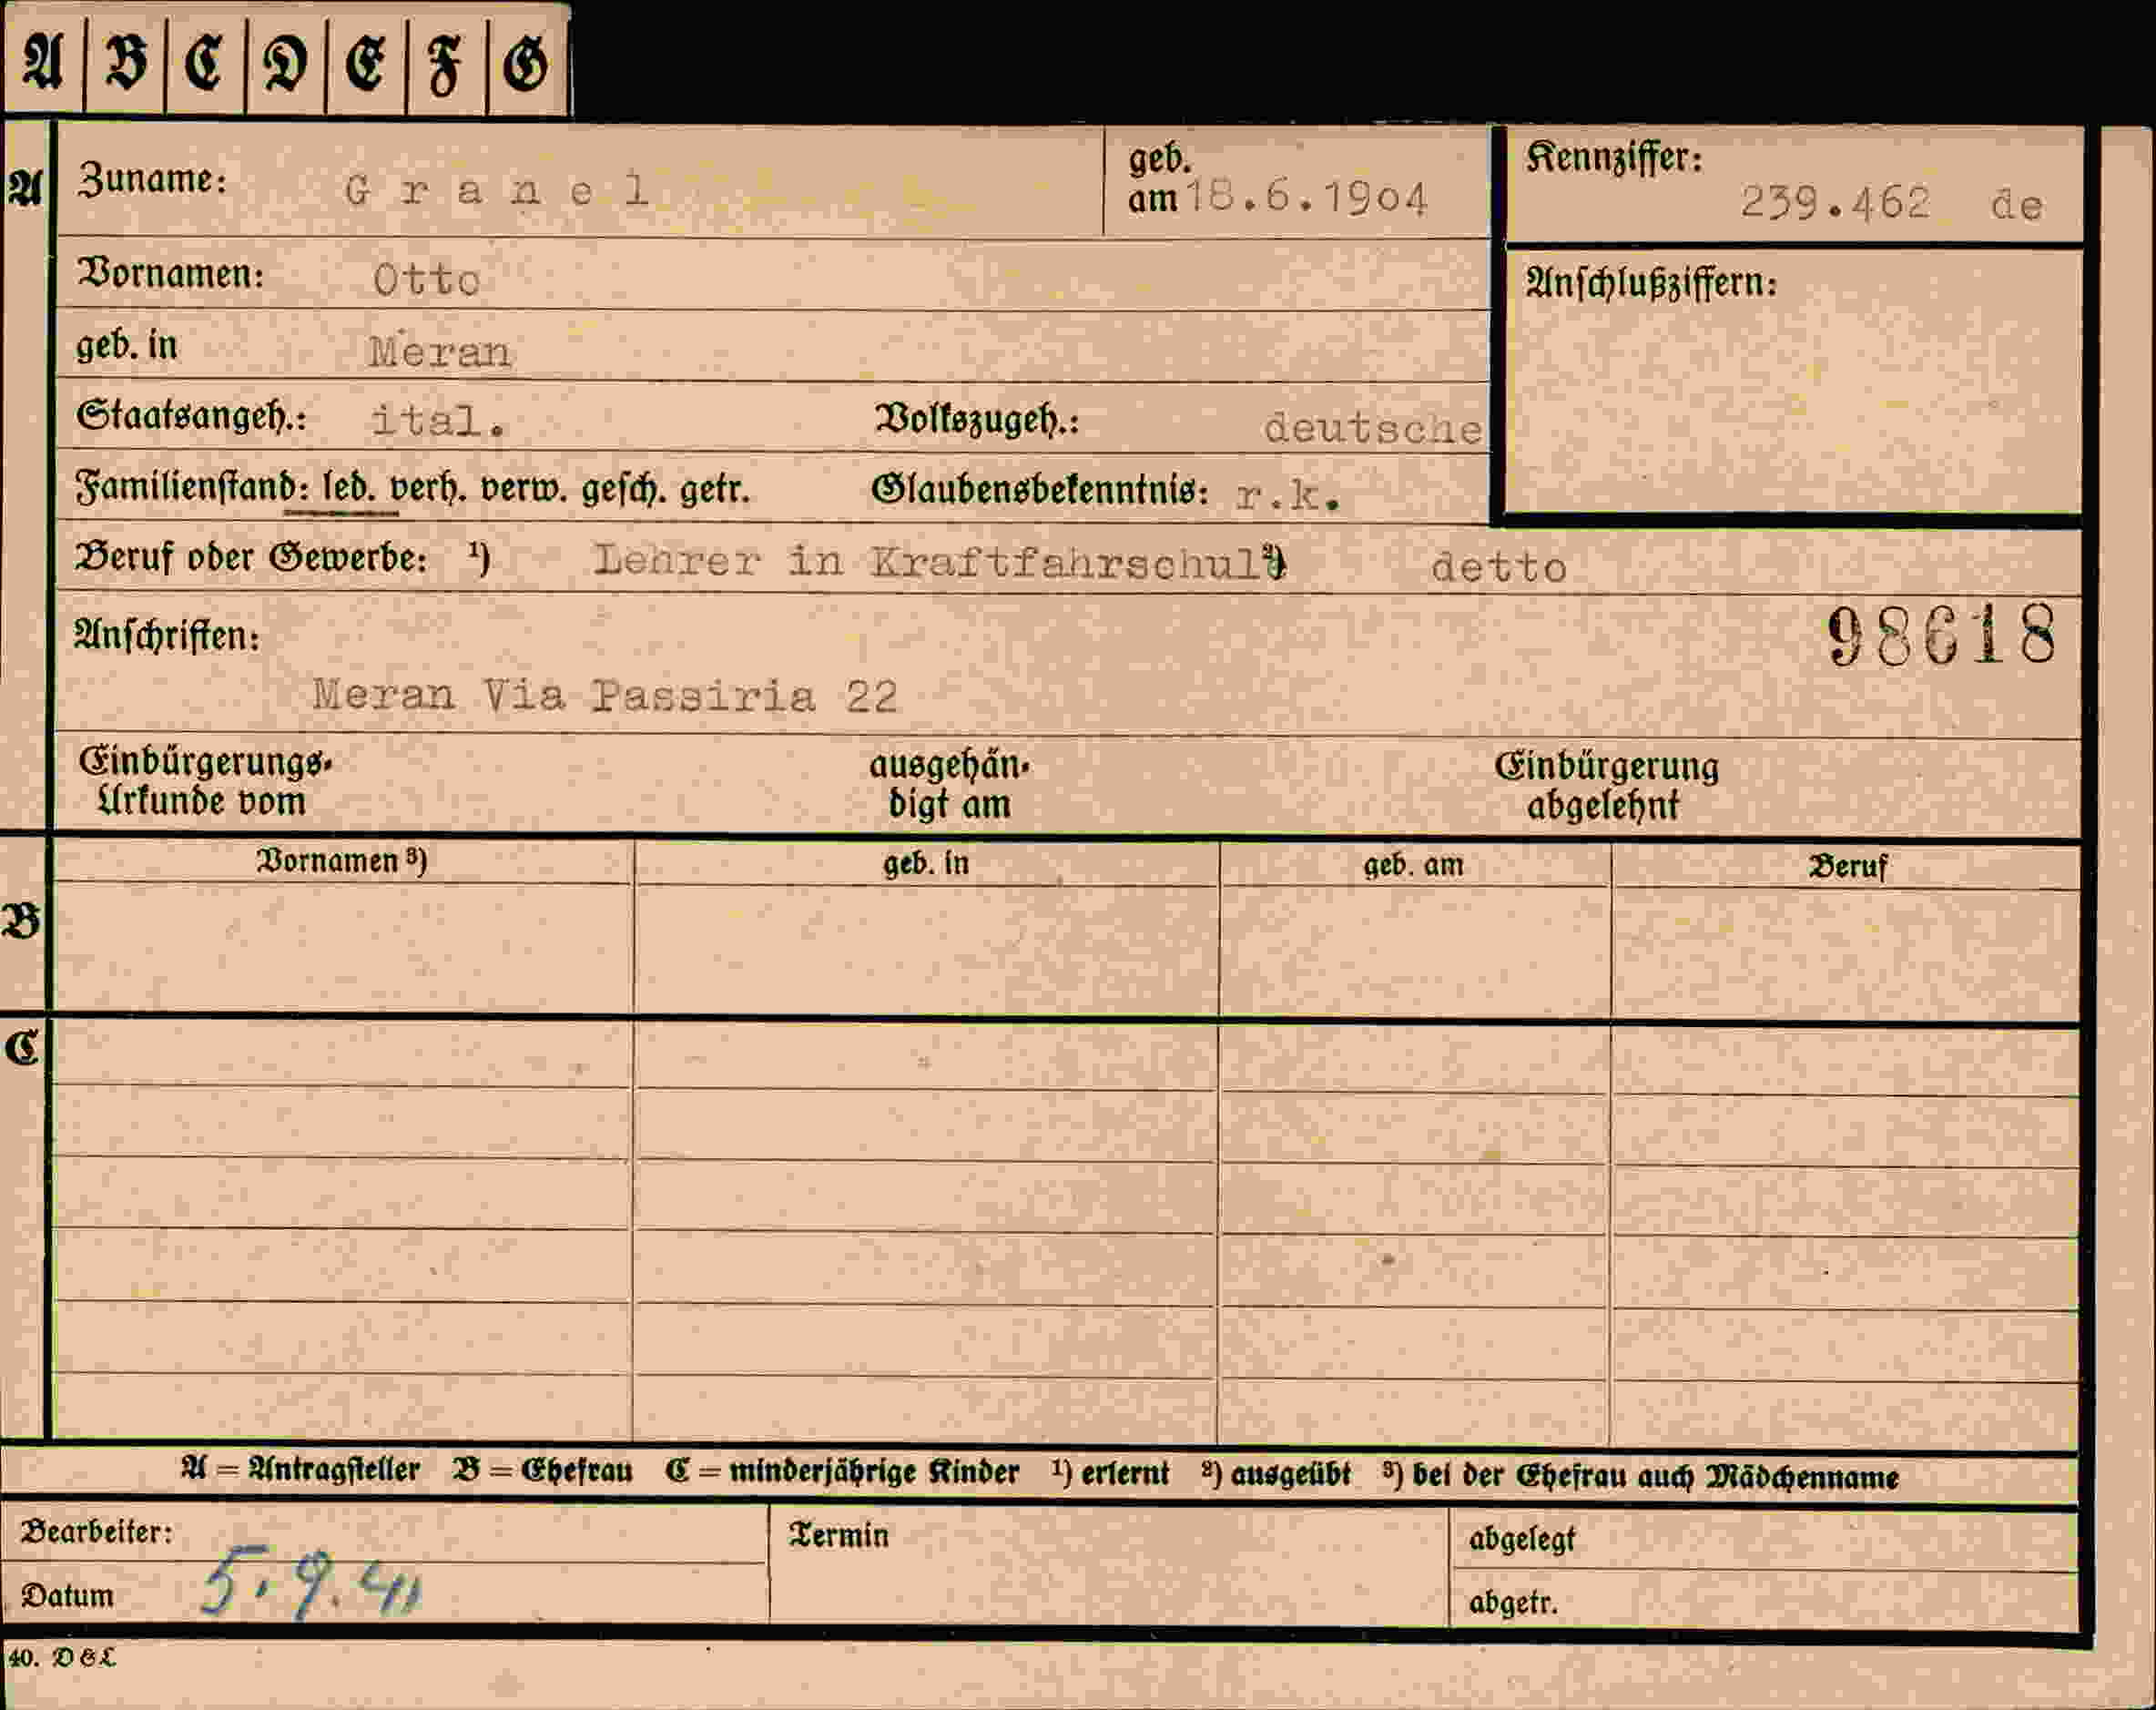 A B C D E F G
A Zuname: Granel geb. am 18.6.1904 Kennziffer: 239.462 de
Vornamen: Otto Anschlußziffern:
geb. in Meran
Staatsangeh.: ital. Volkszugeh.: deutsche
Familienstand: led. verh. verw. gesch. getr. Glaubensbekenntnis: r.k.
Beruf oder Gewerbe: ¹) Lehrer in Kraftfahrschul ²) detto
Anschriften: 98618
Meran Via Passiria 22
Einbürgerungs- ausgehän- Einbürgerung
Urkunde vom digt am abgelehnt
Vornamen ³) geb. in geb. am Beruf
B
C
A = Antragsteller B = Ehefrau C = minderjährige Kinder ¹) erlernt ²) ausgeübt ³) bei der Ehefrau auch Mädchenname
Bearbeiter: Termin abgelegt
Datum 5.9.41 abgetr.
40. D&L